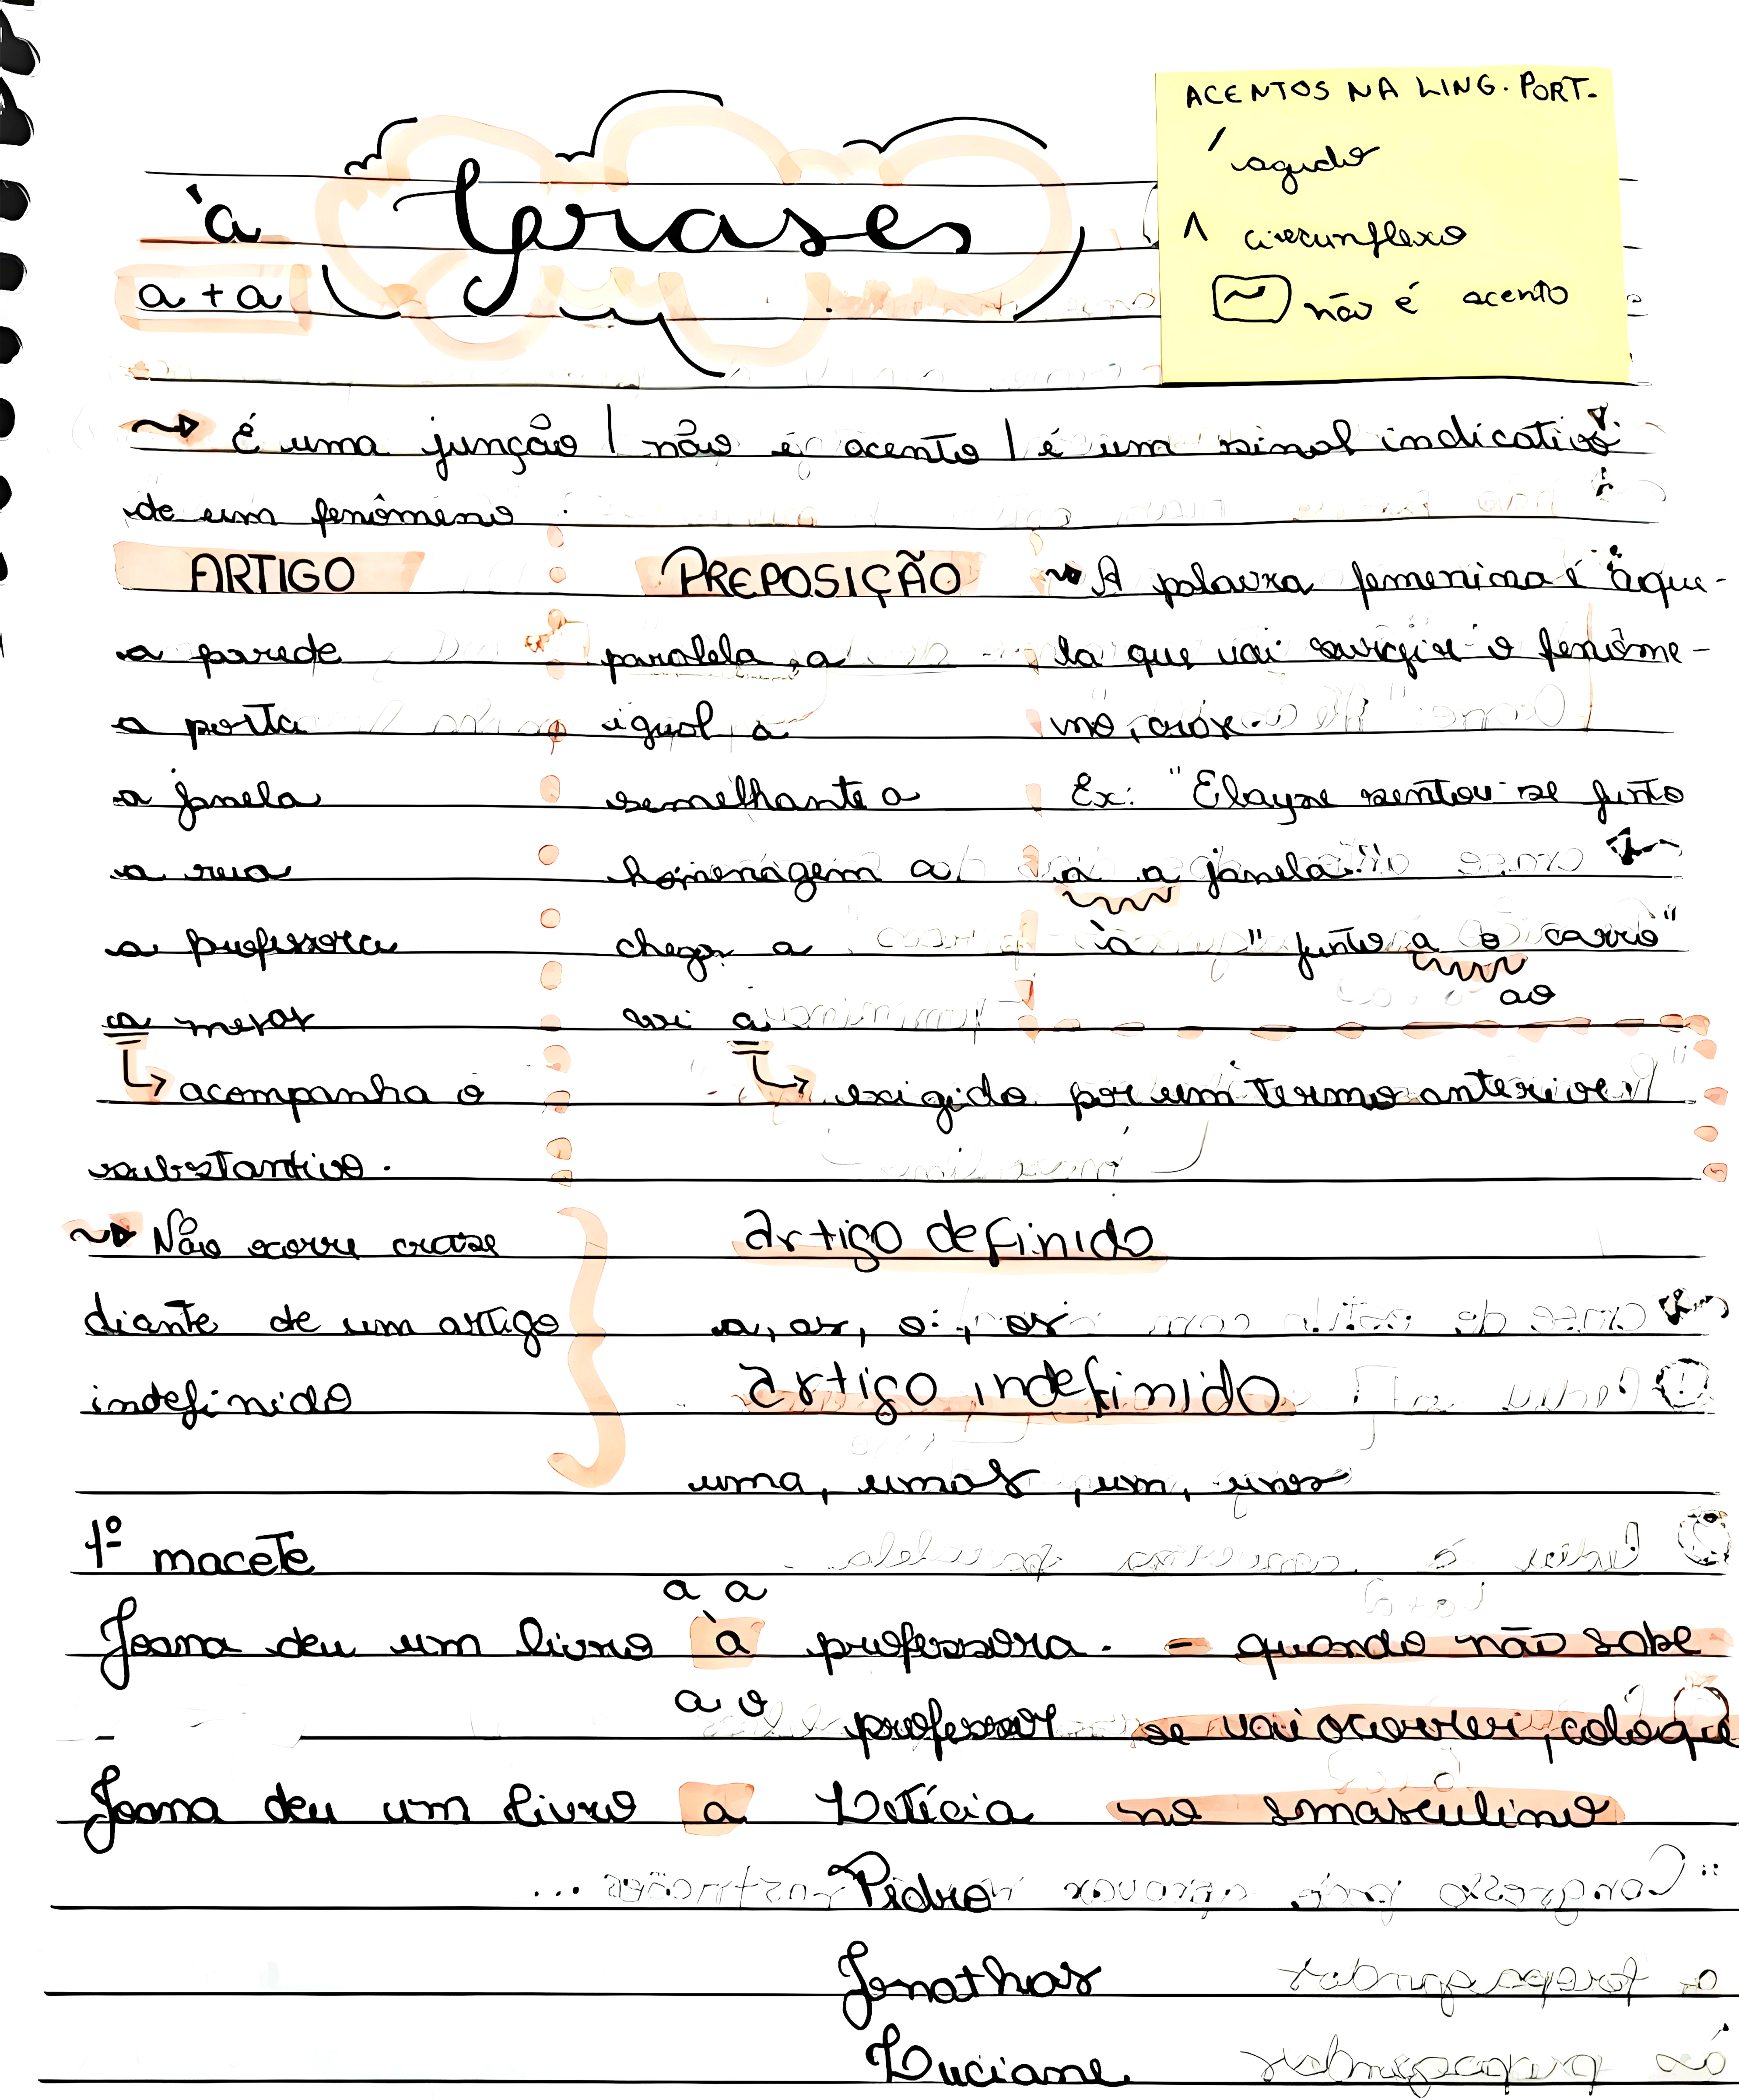 ACENTOS NA LING. PORT.
´ agudo
^ circunflexo
~ não é acento
à
Crases
a + a
É uma junção | não é acento | é um sinal indicativo
de um fenômeno
ARTIGO
a parede
a porta
a janela
a rua
a professora
a mesa
acompanha o
substantivo.
PREPOSIÇÃO
paralela a
igual a
semelhante a
homenagem a
chega a
vai a
exigido por um termo anterior
A palavra femenina é aque-
la que vai surgir o fenôme-
no, crase.
Ex: "Elayse sentou-se junto
a a janela."
à "junto a o carro"
ao
Não ocorre crase
diante de um artigo
indefinido
artigo definido
a, as, o, os
artigo indefinido
uma, umas, um, uns
1º macete
a a
Joana deu um livro à professora. - quando não sabe
a o
professor se vai ocorrer, coloque
Joana deu um livro a Letícia no masculino
Pedro
Jonathas
Luciane